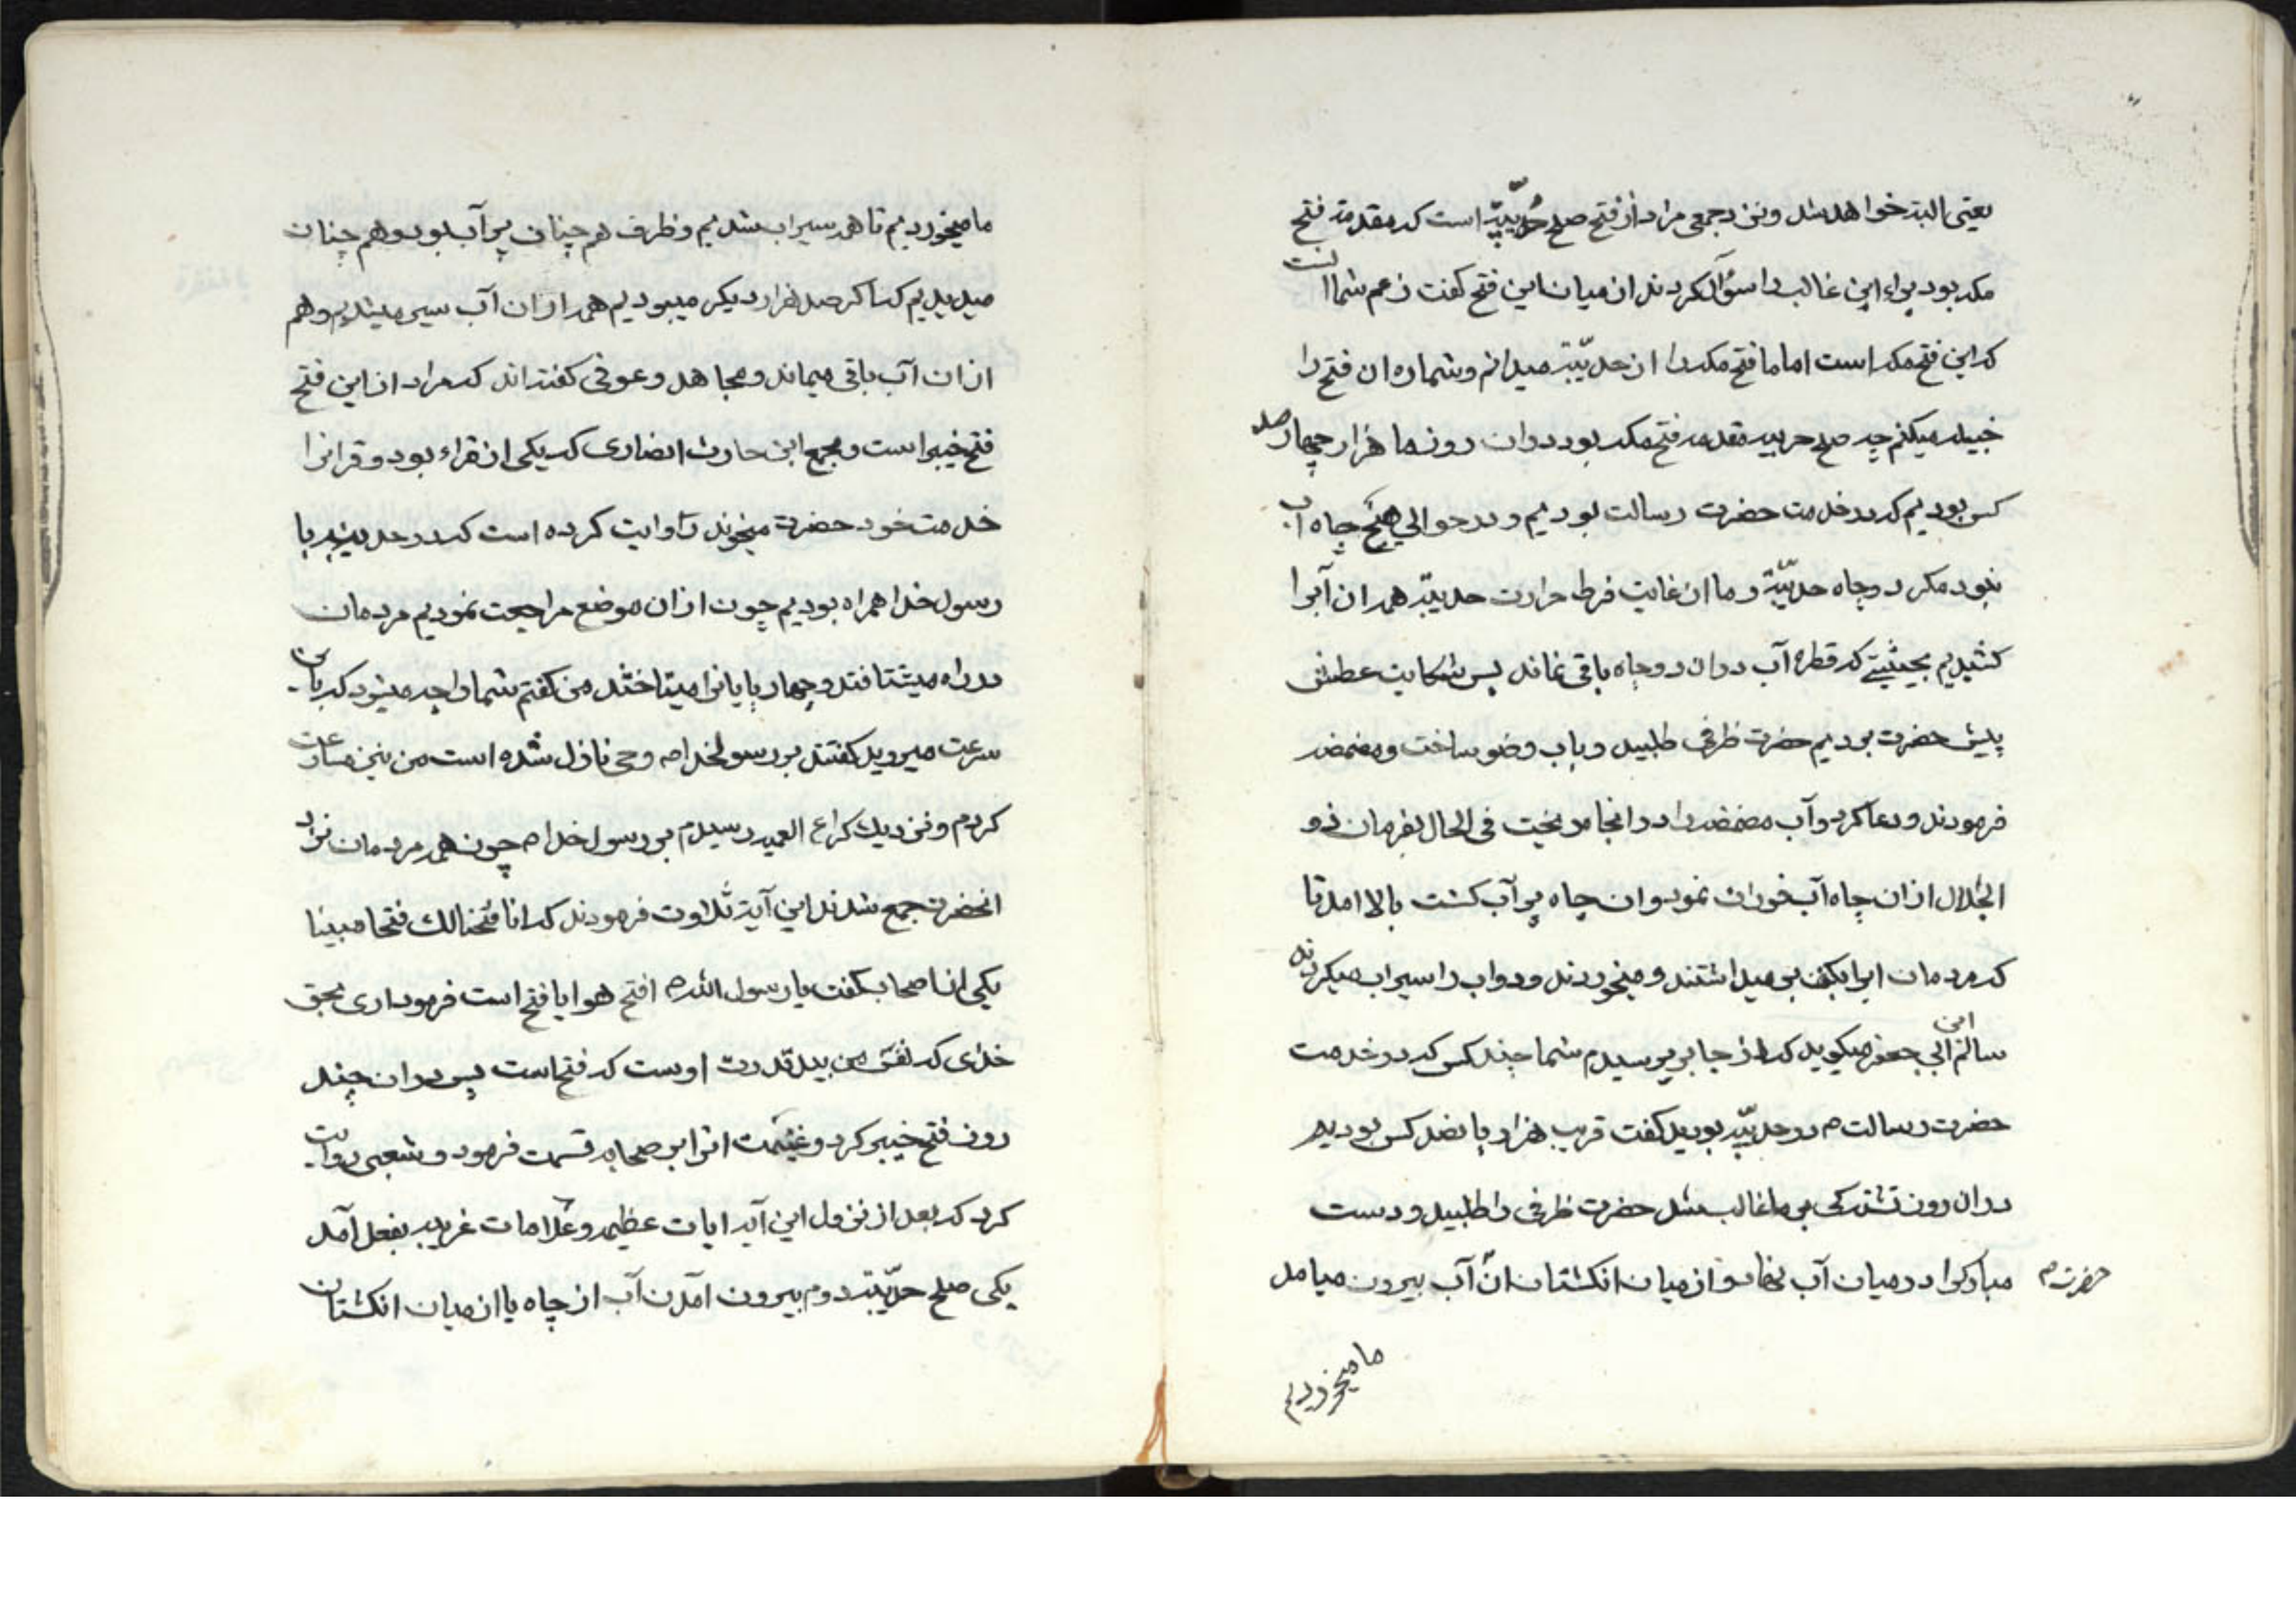 یعنی البته خواهد شد و نزد جمعی مراد از فتح صلح حدیبیّه است که مقدمة فتح
مکه بود براء ابن غالب را سؤال کردند از میان این فتح کفت زعم شما انست
که این فتح مکه است اما ما فتح مکه را از حدیبیّة میدانم و شماره ان فتح را
میکنم چه صلح مقدمه فتح مکه بود دران روز ما هزار چهار صد
کس بودیم که در خدمت حضرت رسالت بودیم و در حوالي هیچ چاه آب
نبود مکر دو چاه حدیبیّة و ما از غایت فرط حرارت حدیبیّة همه ان آبرا
کشیدیم بحیثیتی که قطره آب دران دو چاه باقی نماند پس شکایت عطش
پیش حضرت بردیم حضرت ظرفی طلبید و باب وضو ساخت و مضمضه
فرمودند و دعا کرد و آب مضمضه را در انجا ریخت فی الحال بفرمان ذو
الجلال ازان چاه آب فوران نمود و ان چاه پر آب کشت بالا امد تا
که مردمان ابرا بکف بر میداشتند و میخوردند و دواب را سیراب میکردند
سالم ابن ابی جعفر میکوید که از جابر پرسیدم شما چند کس که در خدمت
حضرت رسالت م در حدیبیّه بودید کفت قریب هزار پانصد کس بودیم
دران روز تشنکی بر ما غالب شد حضرت ظرفی را طلبید و دست
مبارکرا در میان آب نهاد و از میان انکشتان ان آب بیرون میامد
حضرت م
ما میخوردیم
ما میخوردیم تا همه سیراب شدیم و ظرف هم چنان پر آب بود و هم چنان
میدیدیم که اکر صد هزار دیکر میبودیم همه ازان آب سیر میشدیم و هم
ازان آب باقی میماند و مجاهد و عوفی کفته اند که مراد از این فتح
فتح خیبر است و مجمع ابن حارث انصاری که یکی از قراء بود و قرانرا
خدمت خود حضرت میخوند روایت کرده است که در حدیبیه با
رسول خدا همراه بودیم چون ازان موضع مراجعت نمودیم مردمان
در راه میشتافتند و چهار پایانرا میتاختند من کفتم شما را چه میشود که باین
سرعت میروید کفتند بر رسولخدا ص وحی نازل شده است من نیز مسارعت
کردم و نزدیك کراع العمیر رسیدم بر رسول خدا ص چون همه مردمان نزد
انحضرت جمع شدند این آیة تلاوت فرمودند که انا فتحنا لك فتحا مبینا
یکی از اصحاب کفت یا رسول الله ص افتح هو ایا فتح است فرمود اری بحق
خدای که نفس من بید قدرت اوست که فتح است پس دران چند
روز فتح خیبر کرد و غنیمت انرا بر صحابه قسمت فرمود و شعبی روایت
کرد که بعد از نزول این آیه ایات عظیمه و علامات غریبه بفعل آمد
یکی صلح حدیبیّة دوم بیرون آمدن آب از چاه یا از میان انکشتان